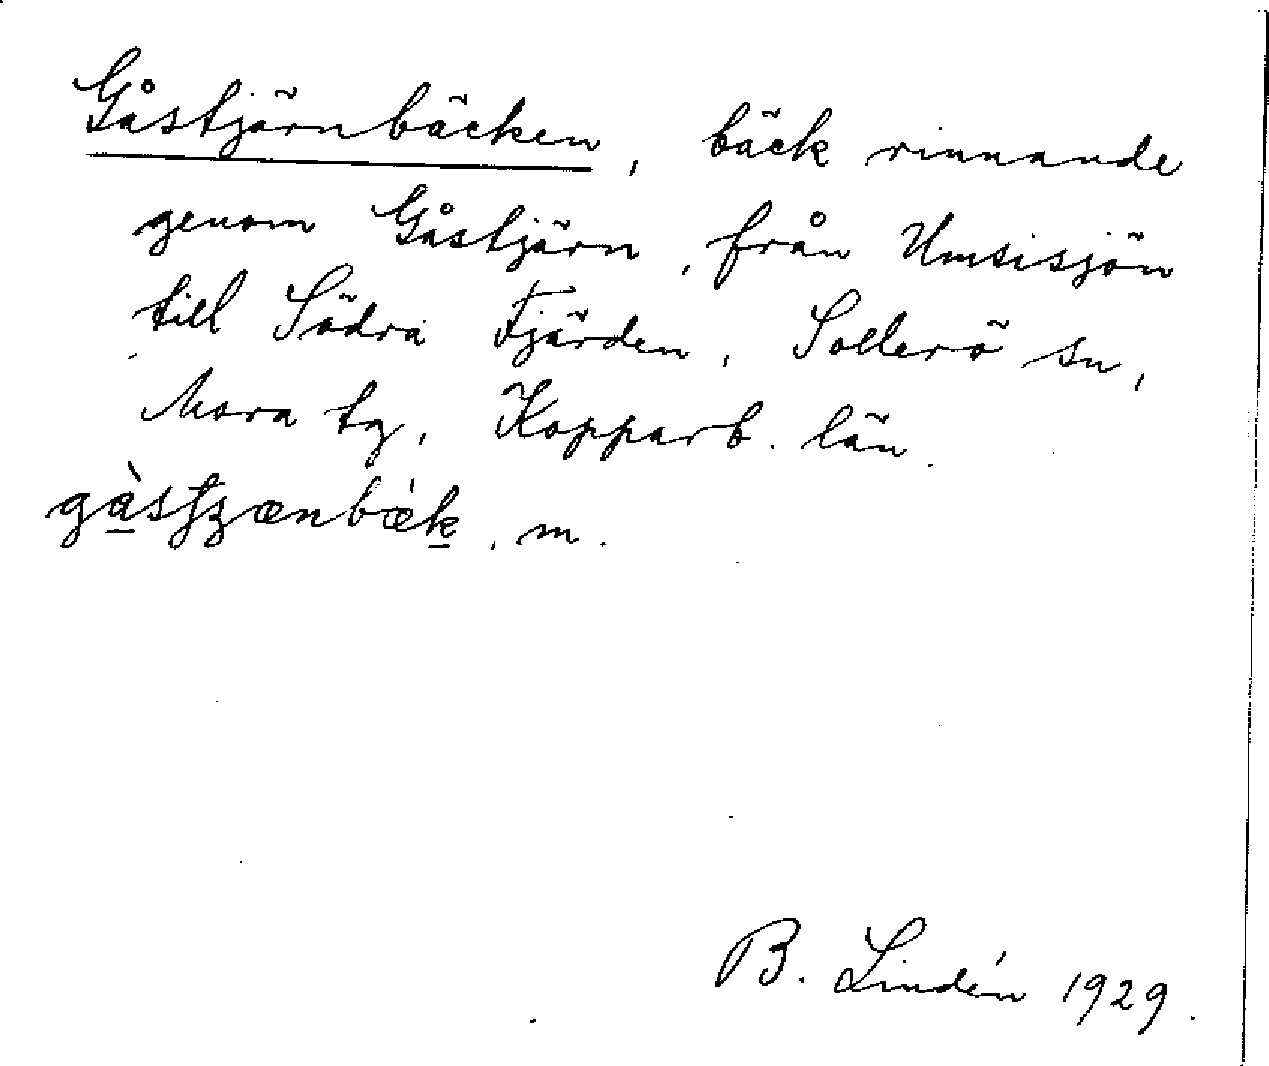 Gåstjärnbäcken, bäck rinnande
genom Gåstjärn, från Umsisjön
till Södra Fjärden, Sollerö sn,
Mora tg, Kopparb. län.
m.
B. Lindén 1929.